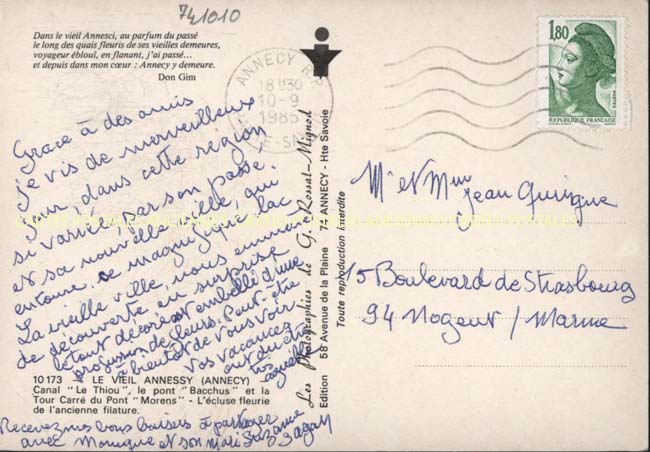 741010
Dans le vieil Annesci, au parfum du passé
le long des quais fleuris de ses vieilles demeures,
voyageur ébloui, en flanant, j'ai passé...
et depuis dans mon cœur : Annecy y demeure.
Don Gim
ANNECY R.P.
18 H30
10-9
1985
1,80
POSTES
REPUBLIQUE FRANÇAISE
Grace à des amis
je vis de merveilleux
jour, dans cette région
si variée par son passé.
et sa nouvelle ville, qui
entoure, ce magnifique lac
La vieille ville, nous emmène
de découverte en surprise
le tout décoré et embelli d'une
profusion de fleurs. Peut-être
à bientôt de vous voir
Vos vacances
ont du être
Recevez mes bons baisers à partager
avec Monique et son mari Suzanne
Sagall
10 173 - LE VIEIL ANNESSY (ANNECY) -
Canal "Le Thiou", le pont "Bacchus" et la
Tour Carré du Pont "Morens" - L'écluse fleurie
de l'ancienne filature.
Les Photographies de G. Rossat-Mignod
Edition 58 Avenue de la Plaine 74 ANNECY - Hte Savoie
Toute reproduction interdite
Mr et Mme
Jean Gurigue
15 Boulevard de Strasbourg
94 Nogent / Marne